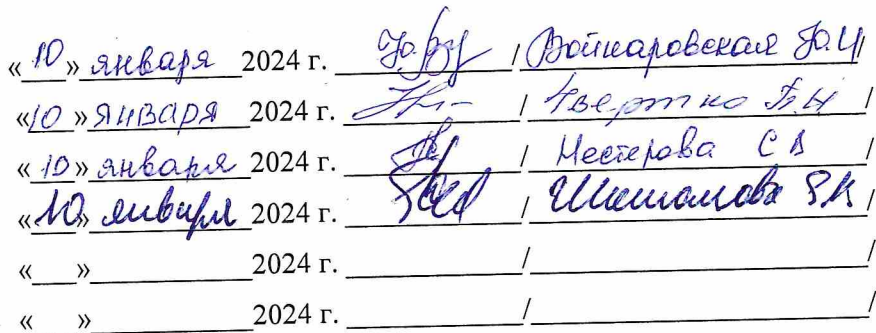 «10» января 2024 г. / Войнаровская Ю.И /
«10» января 2024 г. / Чвертко Б.Н /
«10» января 2024 г. / Нестерова С В /
«10» января 2024 г. / /
«___»____________2024 г. _____________/_________________________/
«___»____________2024 г. _____________/_________________________/